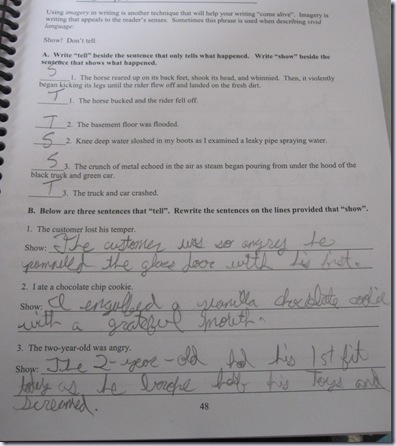 Using imagery in writing is another technique that will help your writing "come alive". Imagery is
writing that appeals to the reader's senses. Sometimes this phrase is used when describing vivid
language:
Show! Don't tell.
A. Write "tell" beside the sentence that only tells what happened. Write "show" beside the
sentence that shows what happened.
S 1. The horse reared up on its back feet, shook its head, and whinnied. Then, it violently
began kicking its legs until the rider flew off and landed on the fresh dirt.
T 1. The horse bucked and the rider fell off.
T 2. The basement floor was flooded.
S 2. Knee deep water sloshed in my boots as I examined a leaky pipe spraying water.
S 3. The crunch of metal echoed in the air as steam began pouring from under the hood of the
black truck and green car.
T 3. The truck and car crashed.
B. Below are three sentences that "tell". Rewrite the sentences on the lines provided that "show".
1. The customer lost his temper.
Show: The customer was so angry he
the glass door with his
2. I ate a chocolate chip cookie.
Show: I engulfed a vanilla chocolate
with a grateful mouth.
3. The two-year-old was angry.
Show: The 2-year-old had his 1st fit
as he his Toys and
Screamed.
48